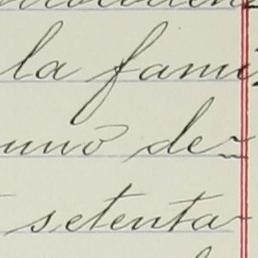 la fami
uno de=
setenta